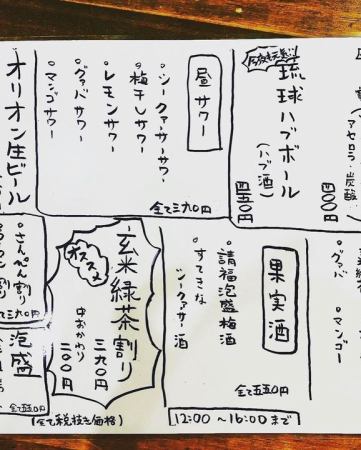 アセロラ・炭酸
琉球ハブボール
(ハブ酒)
昼サワー
・シークァーサーサワー
・梅干しサワー
・レモンサワー
・グァバサワー
・マンゴサワー
全て三九〇円
オリオン生ビール
・グァバ
マンゴー
果実酒
・請福泡盛梅酒
・すてきな
シークァーサー酒
全て五五〇円
玄米緑茶割り
オススメ
三九〇円
中おかわり
二〇〇円
・さんぴん割り
全て三九〇円
泡盛
(全て税抜き価格)
12:00～16:00まで